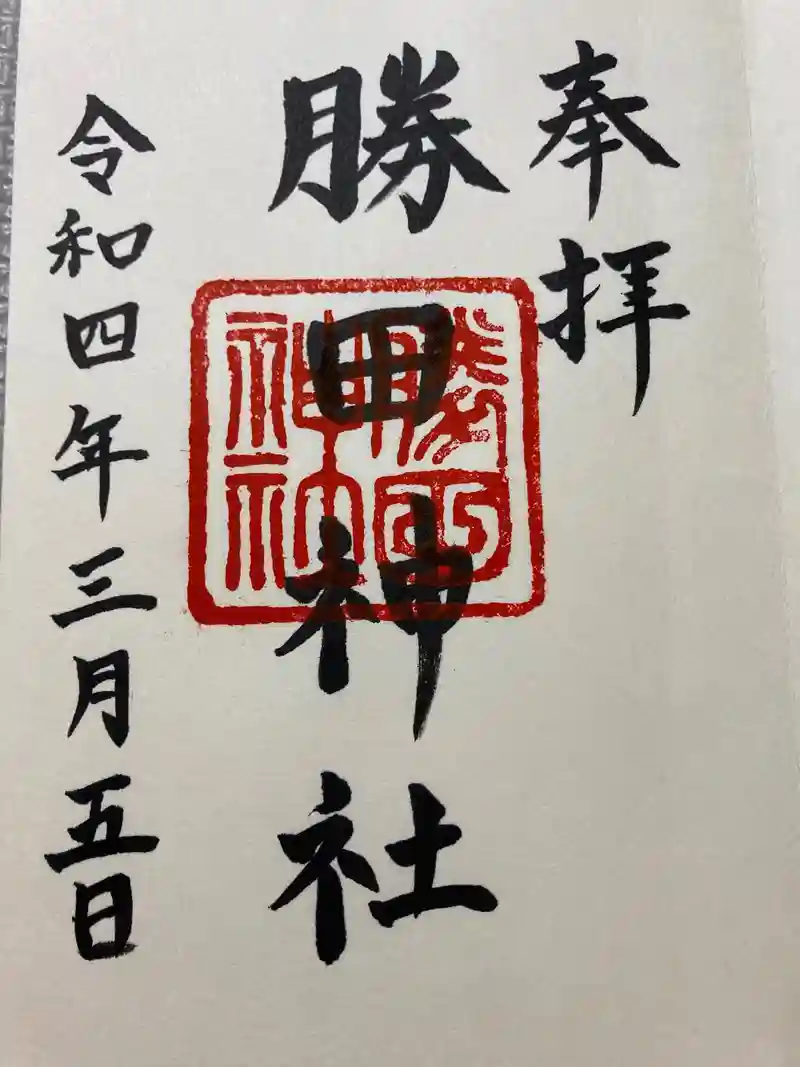 奉拝
勝田神社
勝田神社
令和四年三月五日